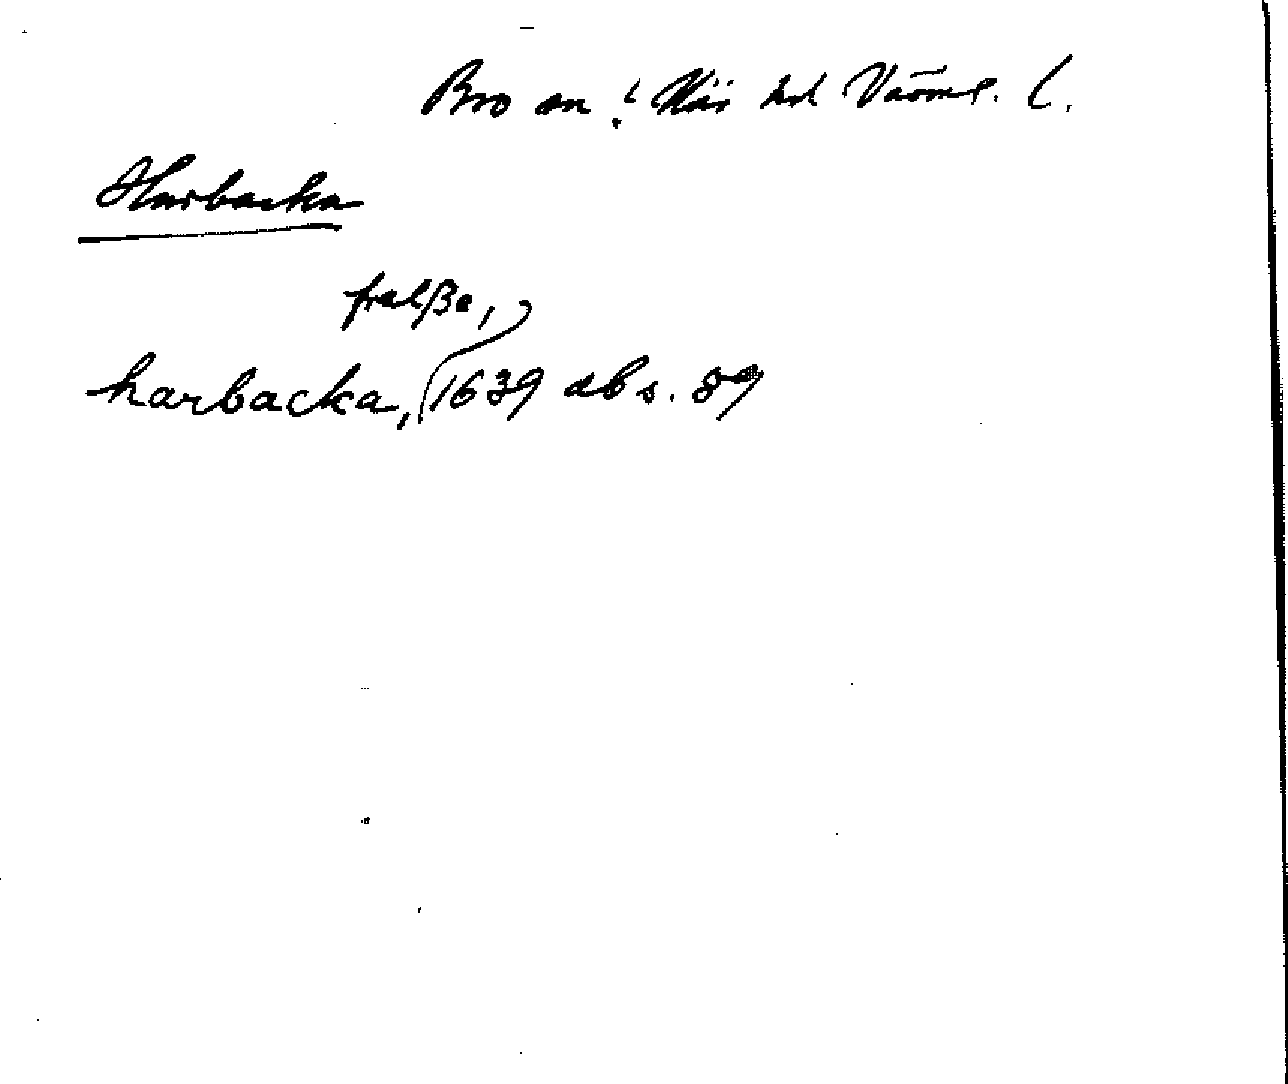 Bro sn. Näs hd Värml. l.
Harbacka
frelße,
harbacka, 1639 ab s. 89